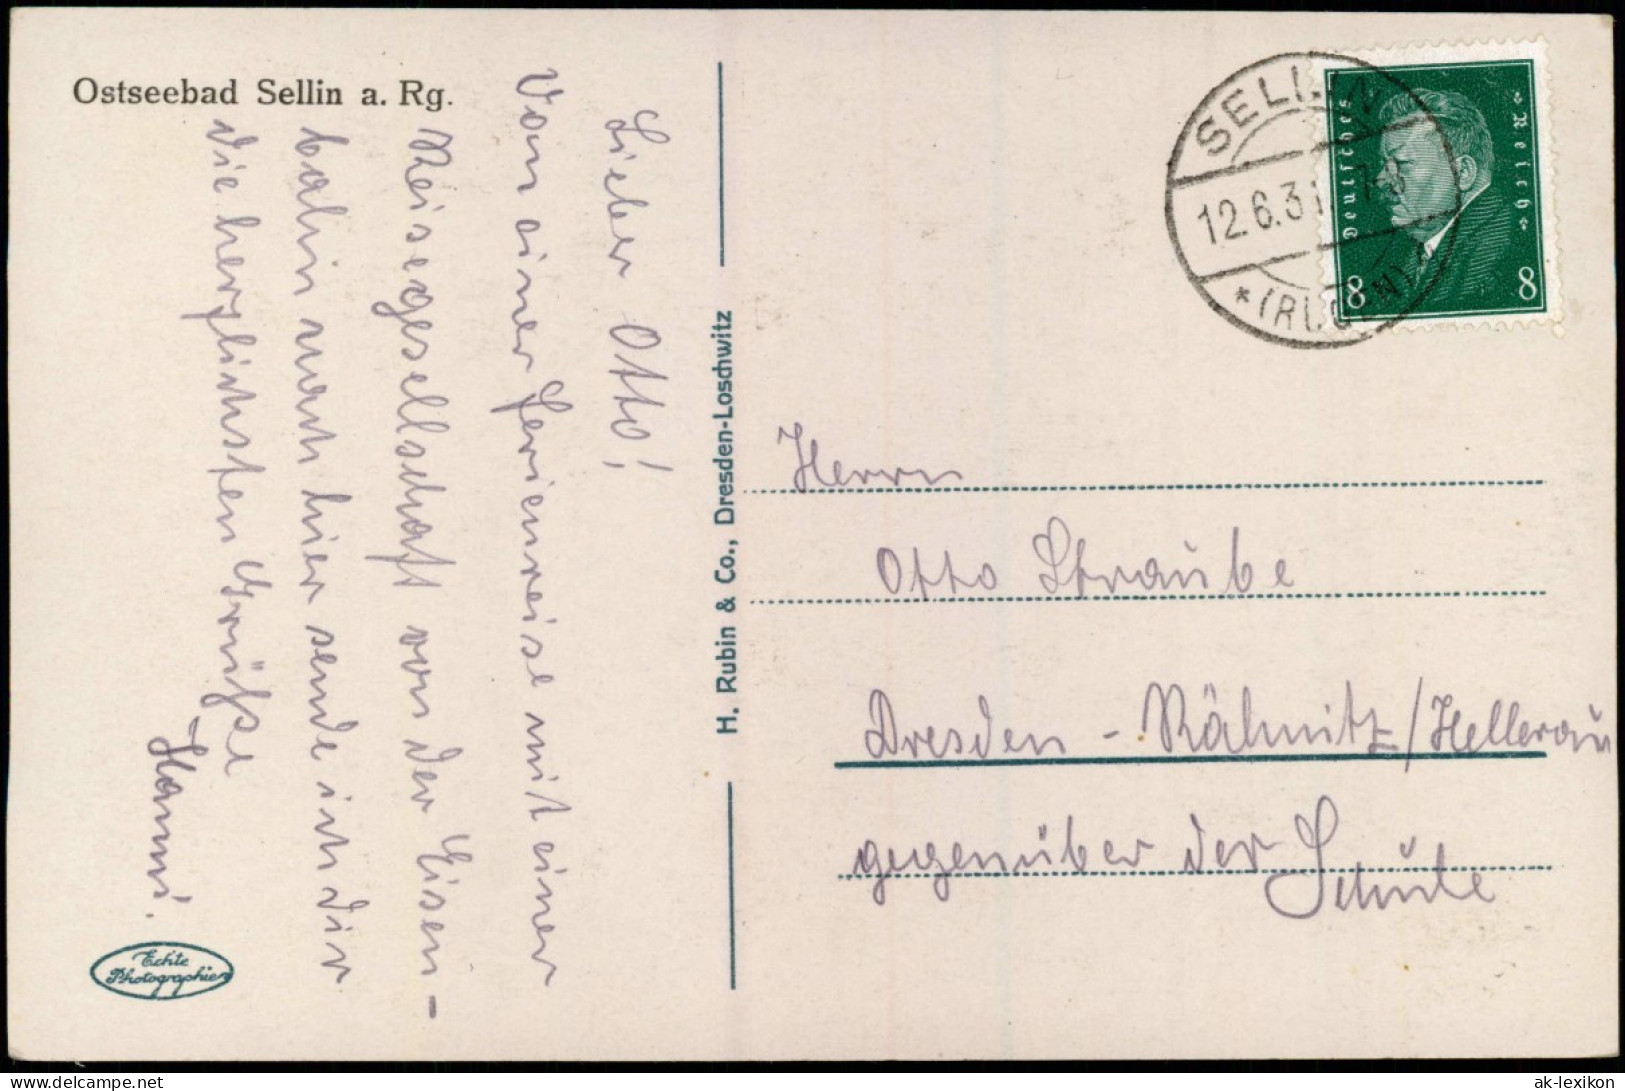 Ostseebad Sellin a. Rg.
Lieber Otto!
Von einer Ferienreise mit einer
Reisegesellschaft von der Eisen-
bahn nach hier sende ich dir
die herzlichsten Grüße
Hanni.
Echte
Photographie
H. Rubin & Co., Dresden-Loschwitz
SELLIN
12.6.31 7-8
* (RÜGEN)
Deutsches
Reich
8 8
Herrn
Otto Straube
Dresden-Rähnitz/Hellerau
gegenüber der Schule
delcampe.net
ak-lexikon